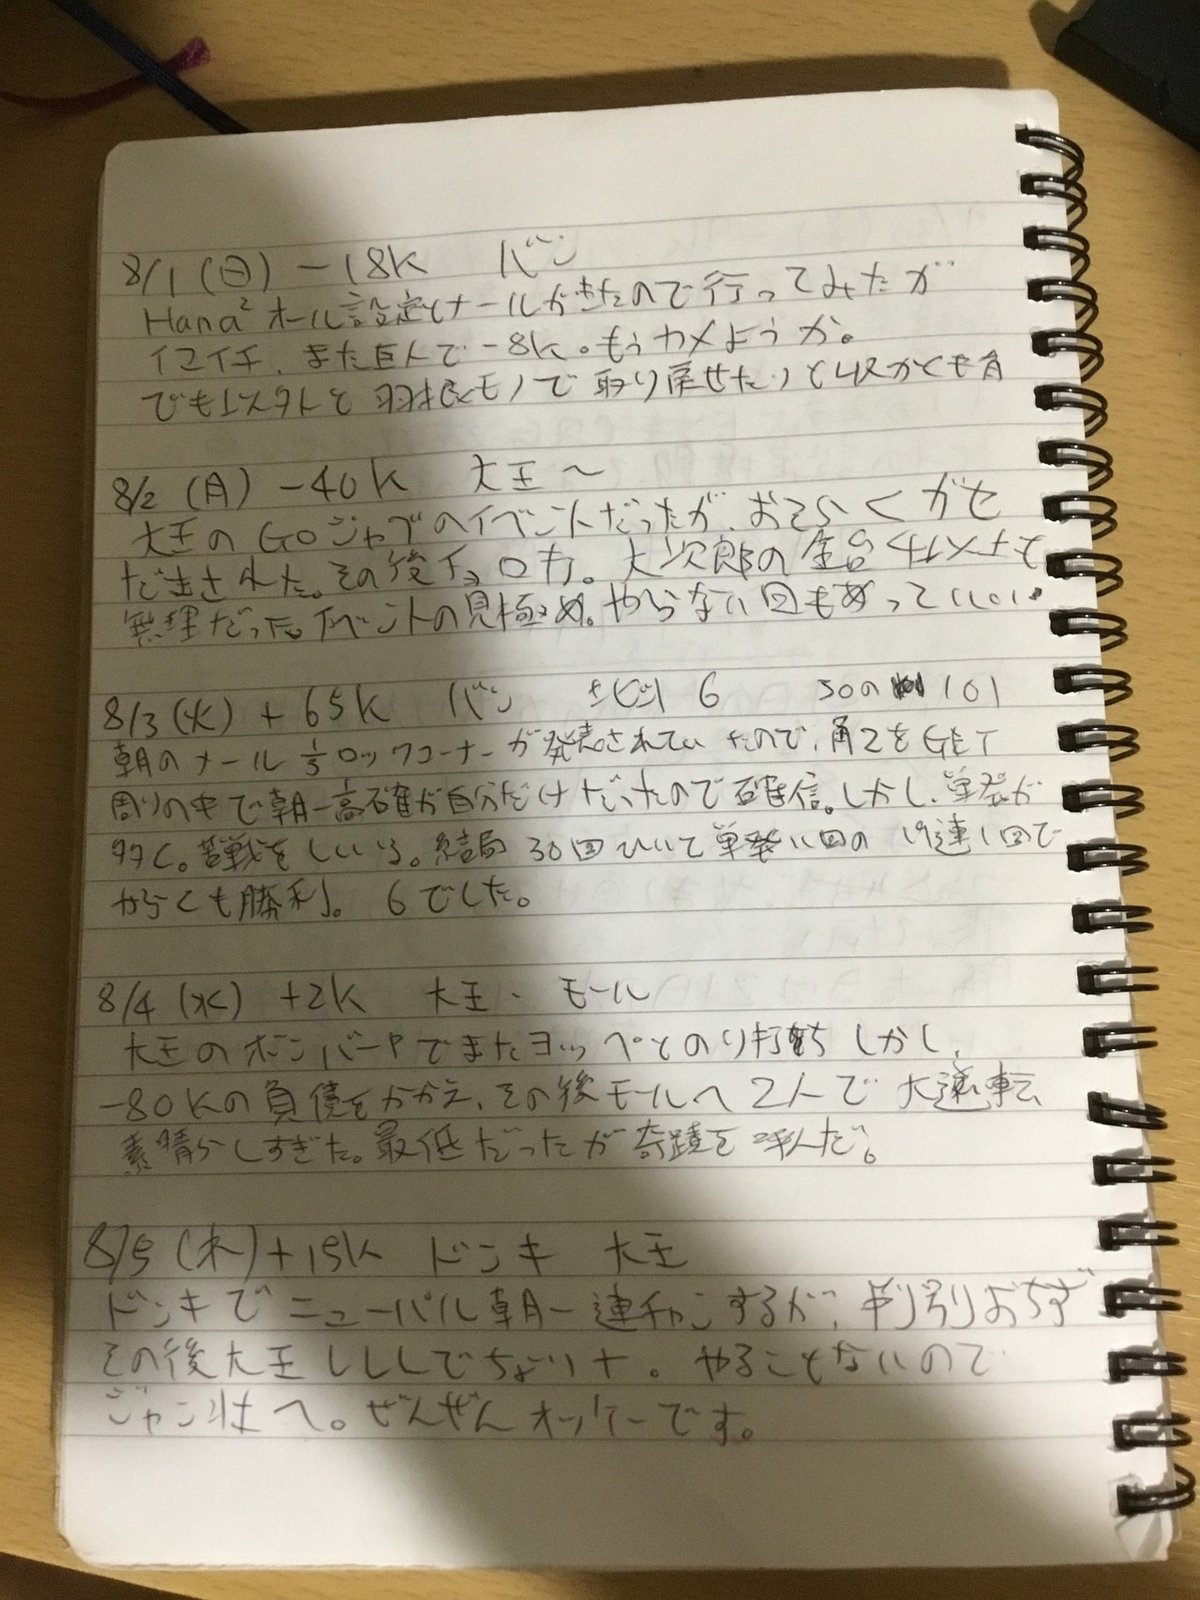 8/1 (日) -18K バン
Hana² オール設定メールがきたので行ってみたが
イマイチ、また巨人で-8K。もうヤメようか。
でも以外と羽根モノで取り戻せたりと
8/2 (月) -40K 大王〜
大王のGOジャブのイベントだったが、おそらくガセ
だ出された。その後チョロ打。大次郎の全台
無理だった。イベントの見極め。やらない日もあっていい。
8/3 (火) +65K バン 6 50の 101
朝のメール 1/3ロックコーナーが発表されていたので、角2をGET
周りの中で朝一高確が自分だけだったので確信。しかし、単発が
続く。苦戦をしいる。結局30回ひいて単発11回の19連1回で
からくも勝利。6でした。
8/4 (水) +2K 大王、モール
大王のボンバーヤでまたヨッペとのり打ち しかし、
-80Kの負債をかかえ、その後モールへ2人で大逆転
素晴らしすぎた。最低だったが奇蹟を呼んだ。
8/5 (木) +15K ドンキ 大王
ドンキでニューパル朝一連チャンするが、判別おちず
その後大王 ししし でちょい+。やることないので
ジャン荘へ。ぜんぜんオッケーです。